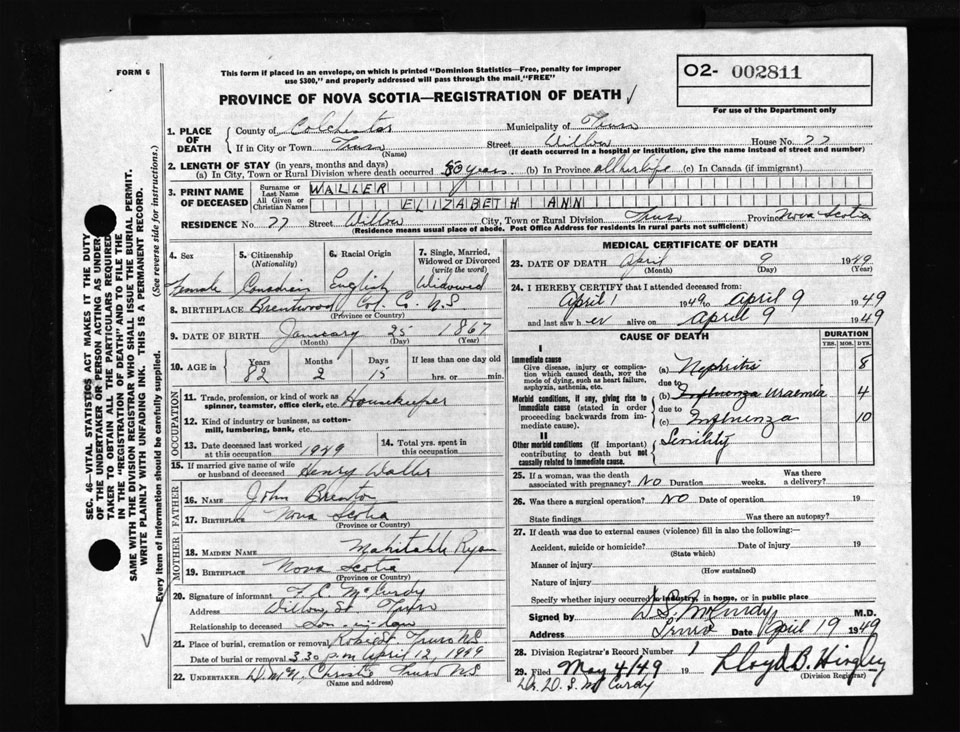 FORM 6
This form if placed in an envelope, on which is printed "Dominion Statistics—Free, penalty for improper
use $300," and properly addressed will pass through the mail "FREE"
O2- 002811
For use of the Department only
PROVINCE OF NOVA SCOTIA—REGISTRATION OF DEATH
1. PLACE OF DEATH
County of Colchester Municipality of Truro
If in City or Town Truro Street Willow House No. 77
(Name) (If death occurred in a hospital or institution, give the name instead of street and number)
2. LENGTH OF STAY (in years, months and days)
(a) In City, Town or Rural Division where death occurred years (b) In Province all her life (c) In Canada (if immigrant)
3. PRINT NAME OF DECEASED
Surname or Last Name WALLER
All Given or Christian Names ELIZABETH ANN
RESIDENCE No. 77 Street Willow City, Town or Rural Division Truro Province Nova Scotia
(Residence means usual place of abode. Post Office Address for residents in rural parts not sufficient)
4. Sex Female
5. Citizenship (Nationality) Canadian
6. Racial Origin English
7. Single, Married, Widowed or Divorced (write the word) Widowed
8. BIRTHPLACE Brentwood Col. Co. N.S
(Province or Country)
9. DATE OF BIRTH January 25 1867
(Month) (Day) (Year)
10. AGE in Years Months Days If less than one day old
82 2 15 hrs. or min.
OCCUPATION
11. Trade, profession, or kind of work as spinner, teamster, office clerk, etc. Housekeeper
12. Kind of industry or business, as cotton-mill, lumbering, bank, etc.
13. Date deceased last worked at this occupation 1949
14. Total yrs. spent in this occupation
15. If married give name of wife or husband of deceased Henry Waller
FATHER
16. Name John Brenton
17. Birthplace Nova Scotia
(Province or Country)
MOTHER
18. Maiden Name Mahitable Ryan
19. Birthplace Nova Scotia
(Province or Country)
20. Signature of informant F. C. McCurdy
Address Willow St. Truro
Relationship to deceased Son-in-law
21. Place of burial, cremation or removal Truro N.S
Date of burial or removal 3.30 p.m April 12, 1949
22. UNDERTAKER Christie Truro N.S
(Name and address)
MEDICAL CERTIFICATE OF DEATH
23. DATE OF DEATH April 9 1949
(Month) (Day) (Year)
24. I HEREBY CERTIFY that I attended deceased from:
April 1 1949 to April 9 1949
and last saw her alive on April 9 1949
CAUSE OF DEATH
DURATION
YRS. MOS. DYS.
I
Immediate cause
Give disease, injury or complication which caused death, not the mode of dying, such as heart failure, asphyxia, asthenia, etc.
(a) Nephritis 8
due to
Morbid conditions, if any, giving rise to immediate cause (stated in order proceeding backwards from immediate cause).
(b) Influenza Uraemia 4
due to
(c) Influenza 10
II
Other morbid conditions (if important) contributing to death but not causally related to immediate cause.
Senility
25. If a woman, was the death associated with pregnancy? NO Duration weeks. Was there a delivery?
26. Was there a surgical operation? NO Date of operation 19
State findings Was there an autopsy?
27. If death was due to external causes (violence) fill in also the following:—
Accident, suicide or homicide? Date of injury 19
(State which)
Manner of injury
(How sustained)
Nature of injury
Specify whether injury occurred in industry, in home, or in public place
Signed by D.S. McCurdy M.D.
Address Truro Date April 19 1949
28. Division Registrar's Record Number 1
29. Filed May 4/49 19 Lloyd B. Hingley
(Division Registrar)
Dr. D. S. McCurdy
SEC. 46—VITAL STATISTICS ACT MAKES IT THE DUTY
OF THE UNDERTAKER OR PERSON ACTING AS UNDER-
TAKER TO OBTAIN ALL THE PARTICULARS REQUIRED
IN THE "REGISTRATION OF DEATH" AND TO FILE THE
SAME WITH THE DIVISION REGISTRAR WHO SHALL ISSUE THE BURIAL PERMIT.
WRITE PLAINLY WITH UNFADING INK. THIS IS A PERMANENT RECORD.
Every item of information should be carefully supplied. (See reverse side for instructions.)